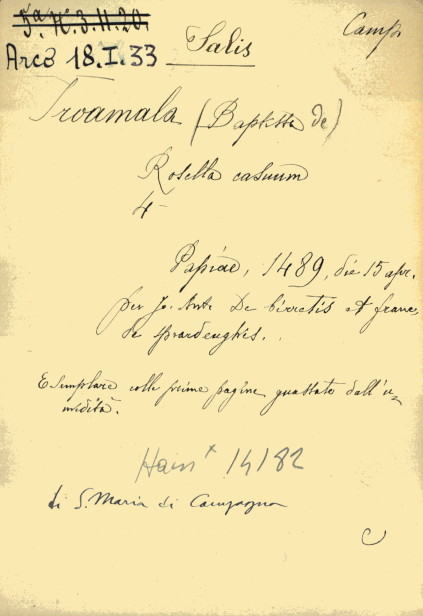 5ª.N.3.H.20.
Arcò 18.I.33
Salis
Camp.
Troamala (Baptista de)
Rosella casuum
4
Papiae, 1489, die 15 apr.
per Jo. Ant. De birretis et franc.
de girardenghis.
Esemplare colle prime pagine guastate dall'u-
midità.
Hain * 14182
di S. Maria di Campagna
C